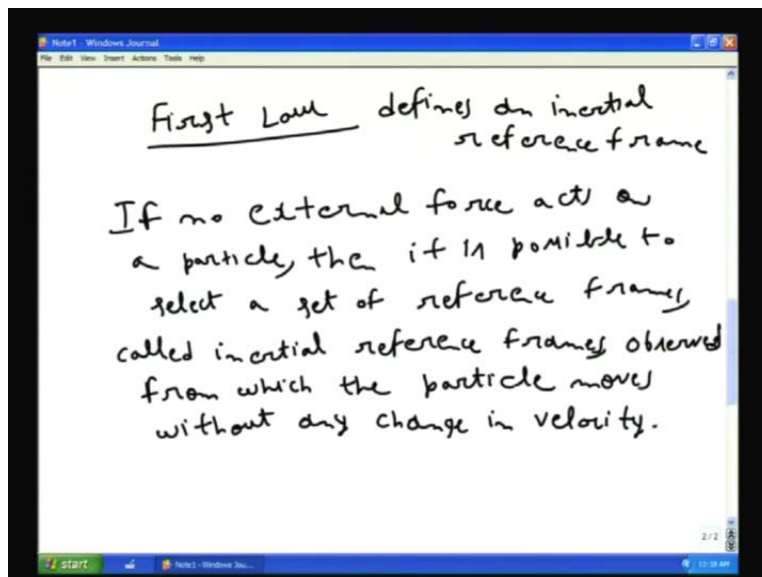 Note1 - Windows Journal
File Edit View Insert Actions Tools Help
First Law defines an inertial
reference frame
If no external force acts on
a particle, then it is possible to
select a set of reference frames,
called inertial reference frames, observed
from which the particle moves
without any change in velocity.
2/2
start Note1 - Windows Jou... 11:18 AM